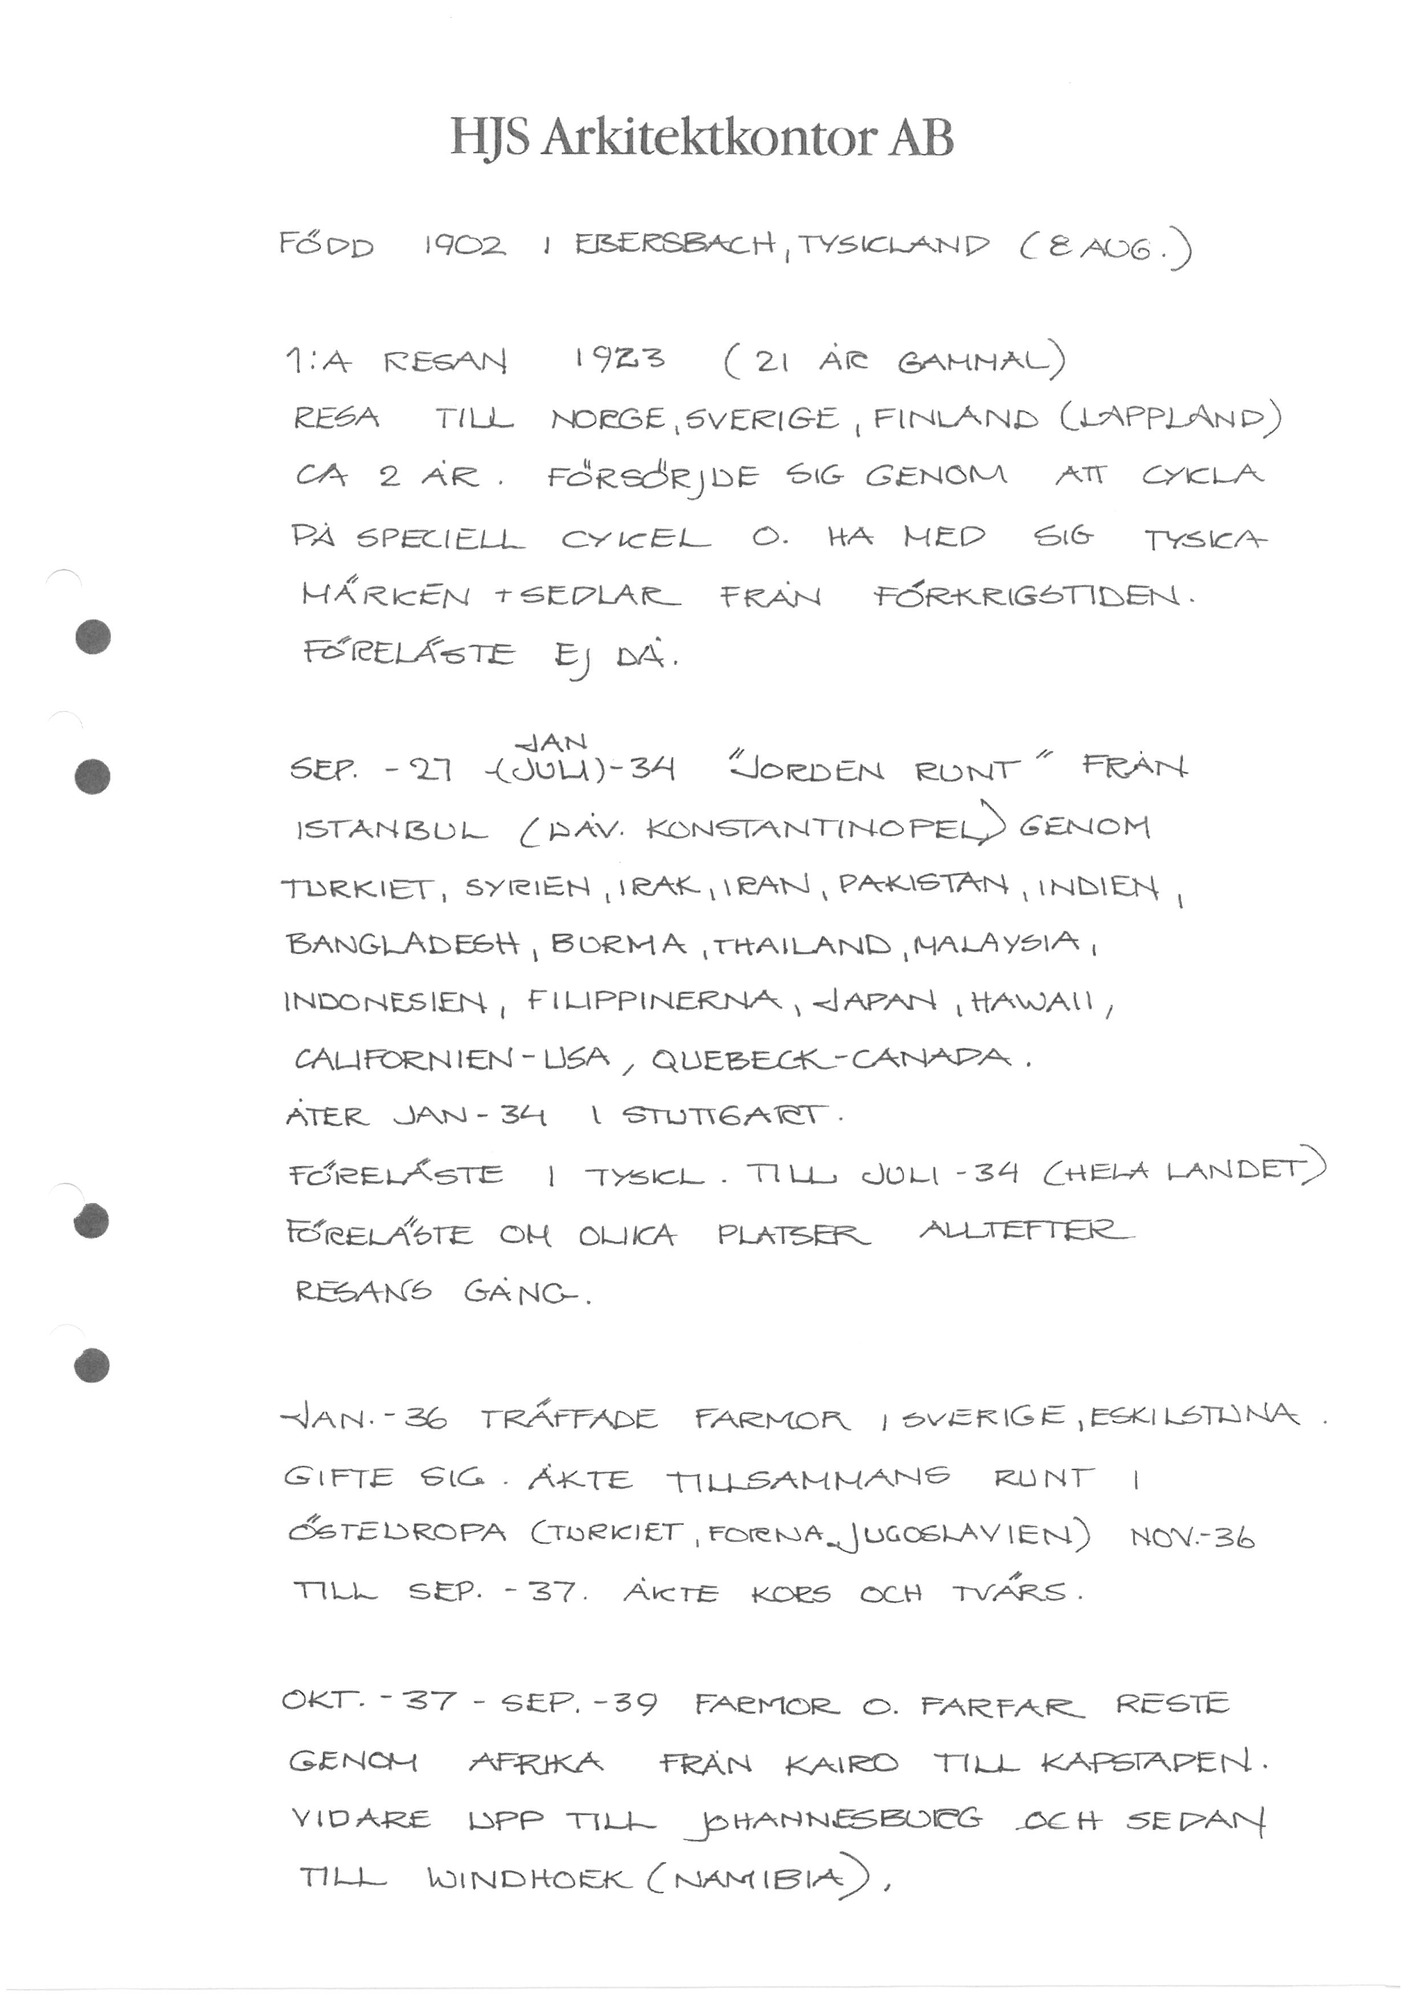 HJS Arkitektkontor AB
FÖDD 1902 I EBERSBACH, TYSKLAND (8 AUG.)
1:A RESAN 1923 (21 ÅR GAMMAL)
RESA TILL NORGE, SVERIGE, FINLAND (LAPPLAND)
CA 2 ÅR. FÖRSÖRJDE SIG GENOM ATT CYKLA
PÅ SPECIELL CYKEL O. HA MED SIG TYSKA
MÄRKEN + SEDLAR FRÅN FÖRKRIGSTIDEN.
FÖRELÄSTE EJ DÅ.
JAN
SEP. -27 -(JULI)-34 "JORDEN RUNT" FRÅN
ISTANBUL (DÅV. KONSTANTINOPEL) GENOM
TURKIET, SYRIEN, IRAK, IRAN, PAKISTAN, INDIEN,
BANGLADESH, BURMA, THAILAND, MALAYSIA,
INDONESIEN, FILIPPINERNA, JAPAN, HAWAII,
CALIFORNIEN-USA, QUEBECK-CANADA.
ÅTER JAN-34 I STUTTGART.
FÖRELÄSTE I TYSKL. TILL JULI -34 (HELA LANDET)
FÖRELÄSTE OM OLIKA PLATSER ALLTEFTER
RESANS GÅNG.
JAN.-36 TRÄFFADE FARMOR I SVERIGE, ESKILSTUNA.
GIFTE SIG. ÅKTE TILLSAMMANS RUNT I
ÖSTEUROPA (TURKIET, FORNA JUGOSLAVIEN) NOV.-36
TILL SEP. -37. ÅKTE KORS OCH TVÄRS.
OKT. -37 - SEP. -39 FARMOR O. FARFAR RESTE
GENOM AFRIKA FRÅN KAIRO TILL KAPSTADEN.
VIDARE UPP TILL JOHANNESBURG OCH SEDAN
TILL WINDHOEK (NAMIBIA).